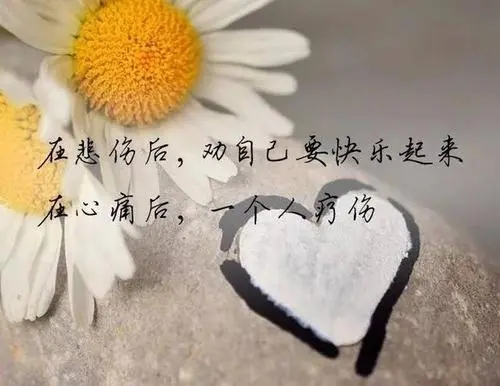 在悲伤后，劝自己要快乐起来
在心痛后，一个人疗伤